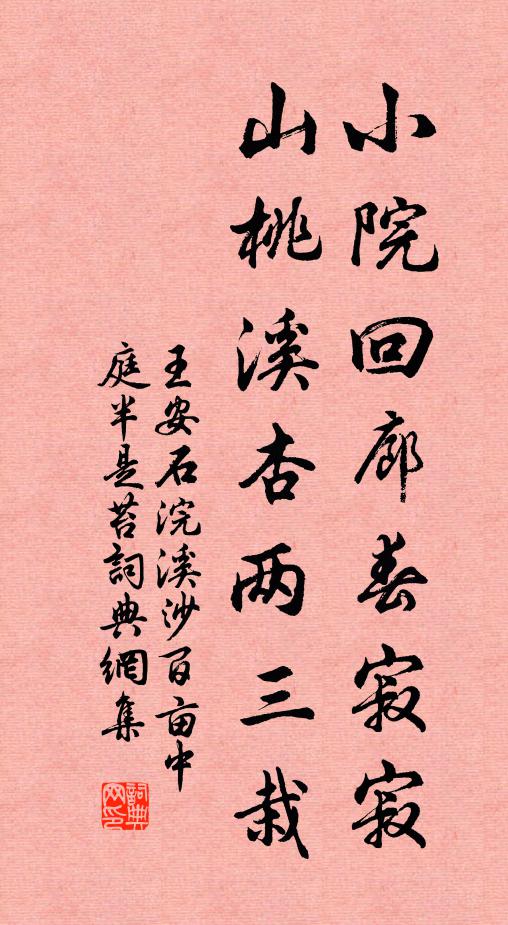 小院回廊春寂寂
山桃溪杏两三栽
王安石浣溪沙百亩中
庭半是苔詞典網集
詞典网印